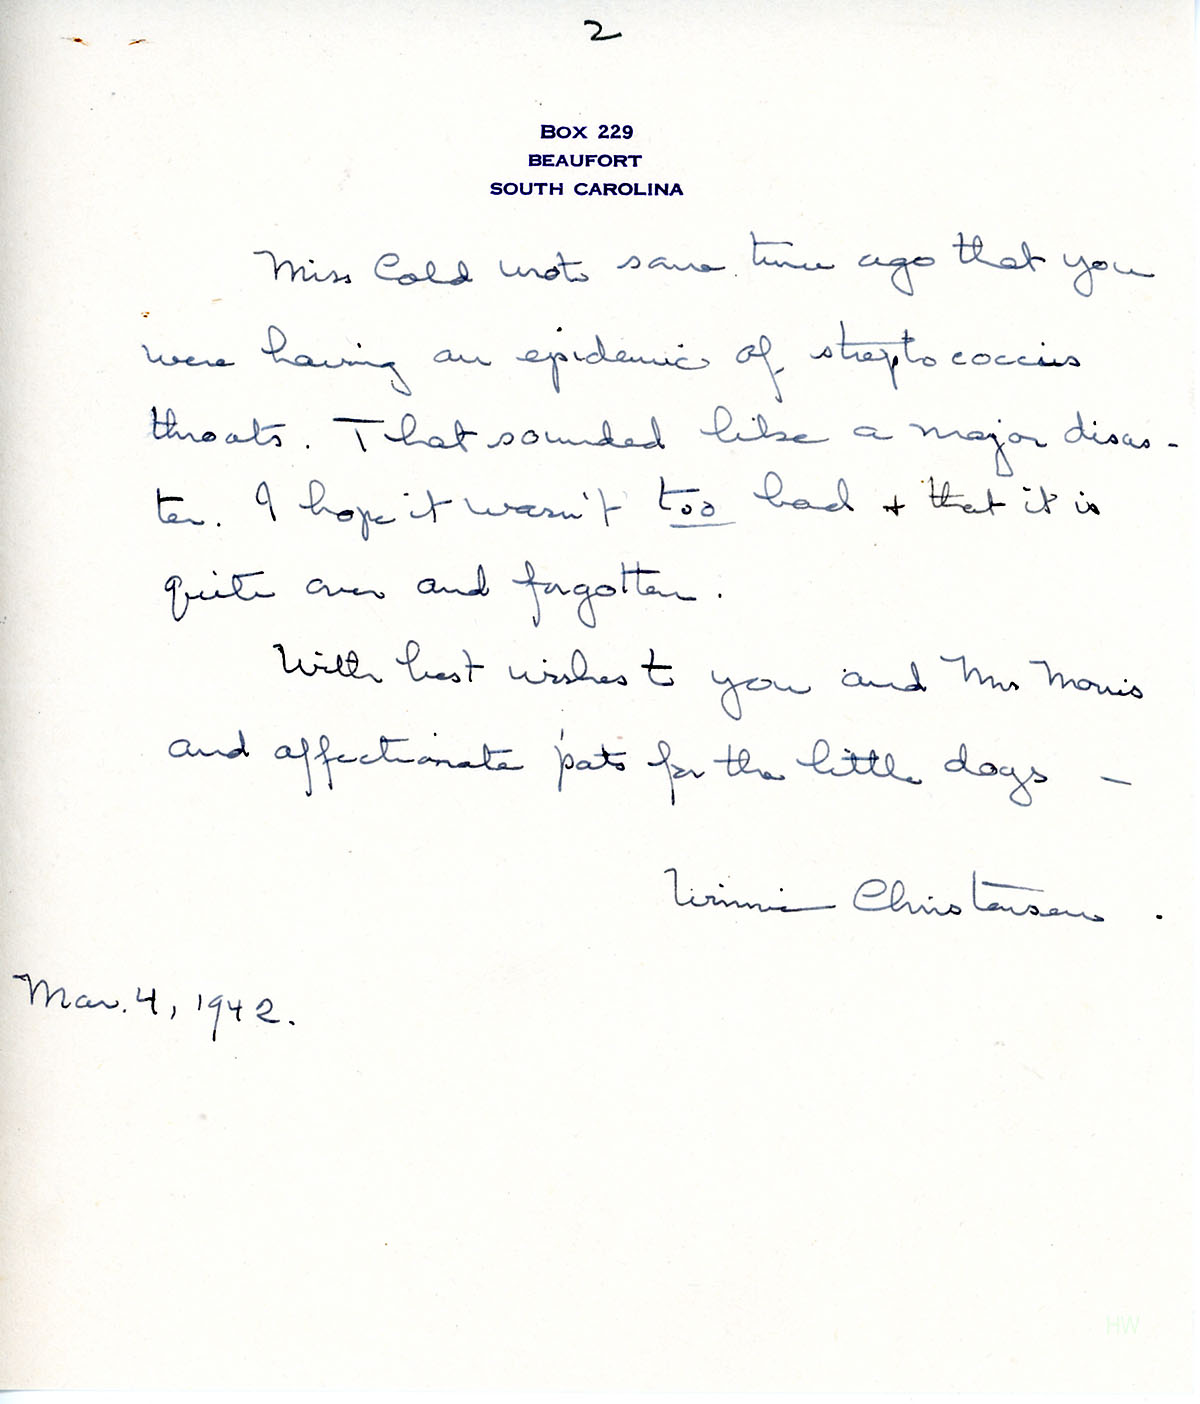 2
Box 229
BEAUFORT
SOUTH CAROLINA
Miss Cold wrote some time ago that you
were having an epidemic of streptococcus
throats. That sounded like a major disas-
ter. I hope it wasn't too bad + that it is
quite over and forgotten.
With best wishes to you and Mrs Morris
and affectionate pats for the little dogs —
Winnie Christensen.
Mar. 4, 1942.
HW